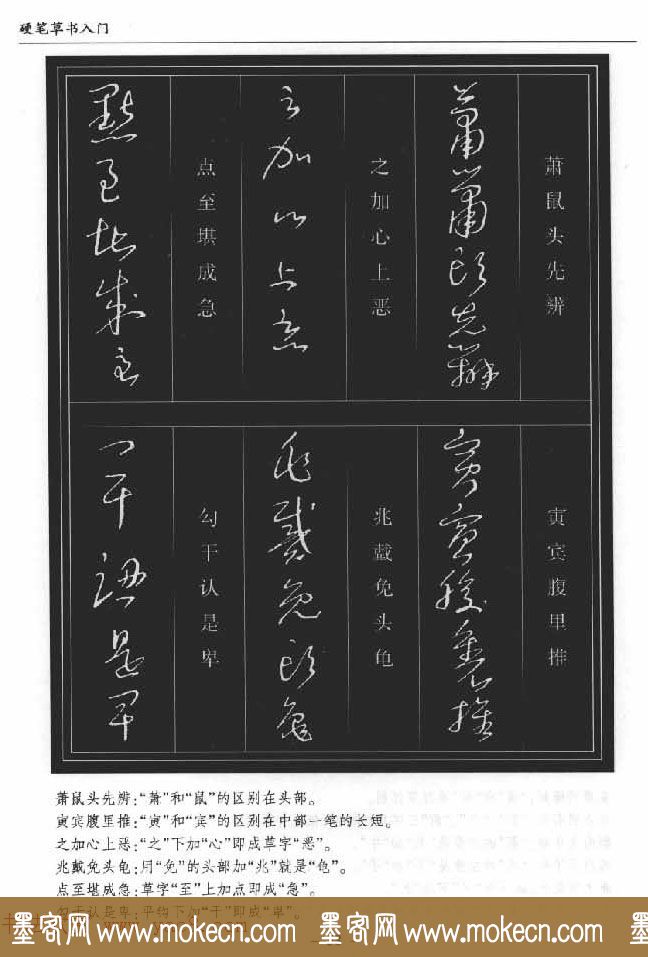 硬笔草书入门
萧鼠头先辨
萧鼠头先辨
寅宾腹里推
寅宾腹里推
之加心上恶
之加心上恶
兆戴免头龟
兆戴免头龟
点至堪成急
点至堪成急
勾干认是卑
勾干认是卑
萧鼠头先辨:“萧”和“鼠”的区别在头部。
寅宾腹里推:“寅”和“宾”的区别在中部一笔的长短。
之加心上恶:“之”下加“心”即成草字“恶”。
兆戴免头龟:用“免”的头部加“兆”就是“龟”。
点至堪成急:草字“至”上加点即成“急”。
勾干认是卑:平钩下加“干”即成“卑”。
墨客网 www.mokecn.com 墨客网 www.mokecn.com